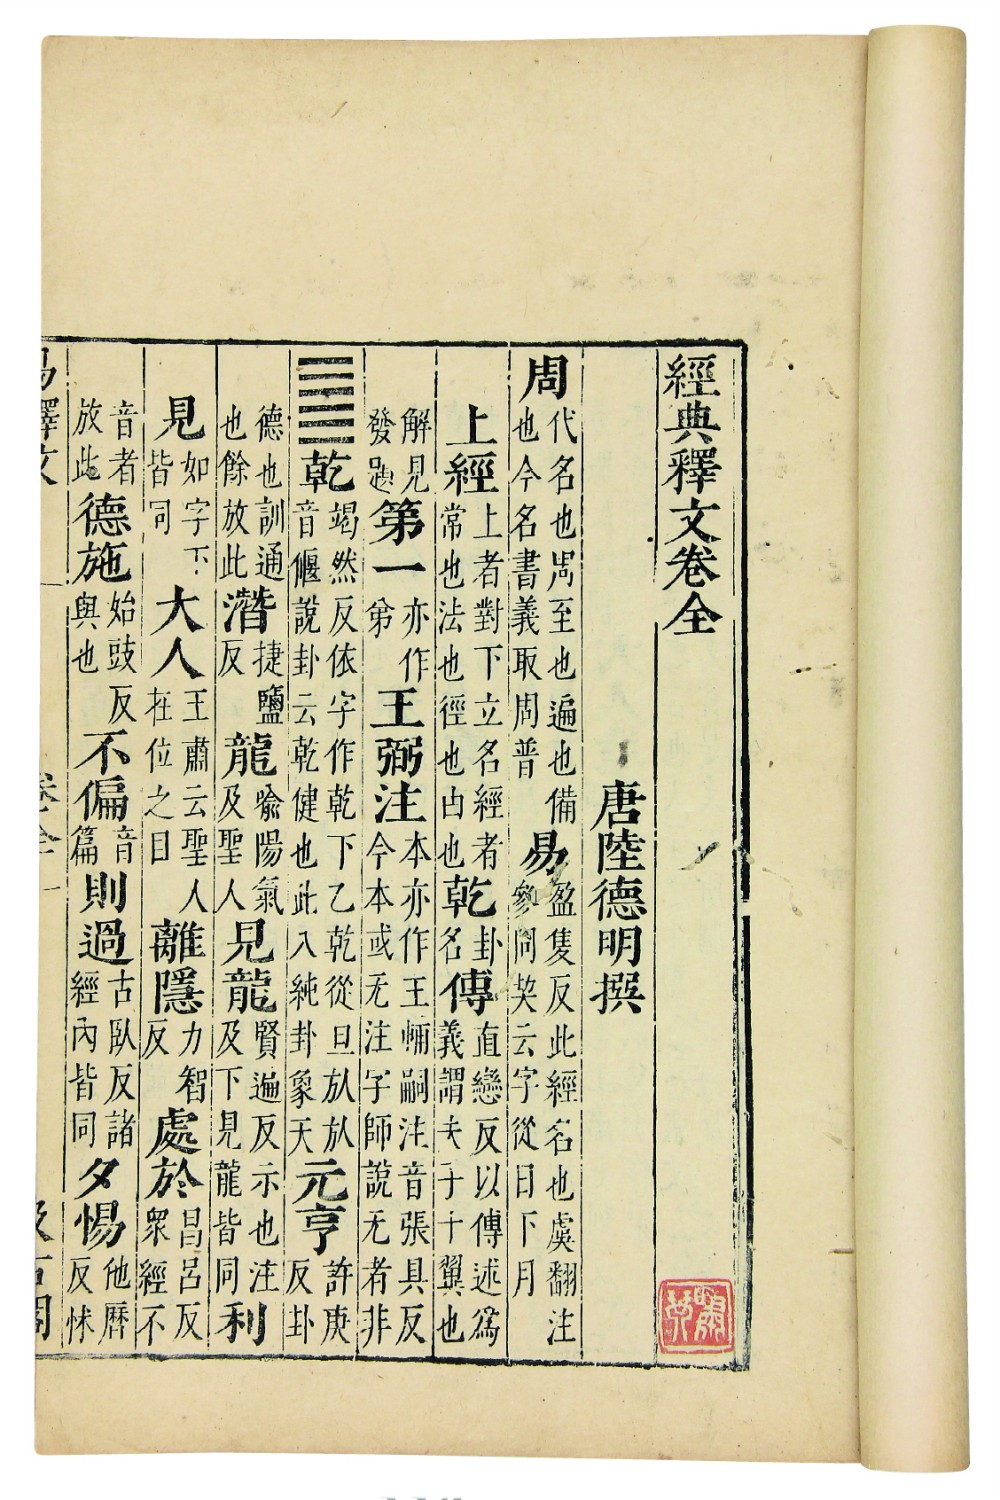 經典釋文卷全
唐陸德明撰
周代名也周至也遍也備也今名書義取周普易盈隻反此經名也虞翻注參同契云字從日下月
上經上者對下立名經者常也法也徑也由也乾卦名傳直戀反以傳述爲義謂夫子十翼也
解見發題第一亦作弟王弼注本亦作王輔嗣注音張具反今本或无注字師說无者非
䷀乾竭然反依字作乾下乙乾從旦㫃㫃音偃說卦云乾健也此八純卦象天元亨許庚反卦
德也訓通也餘放此潛捷鹽反龍喻陽氣及聖人見龍賢遍反示也注及下見龍皆同利
見如字下皆同大人王肅云聖人在位之目離隱力智反處於昌呂反衆經不
音者放此德施始豉反與也不偏音篇則過古臥反諸經內皆同夕惕他曆反怵
易釋文 卷全 一 汲古閣